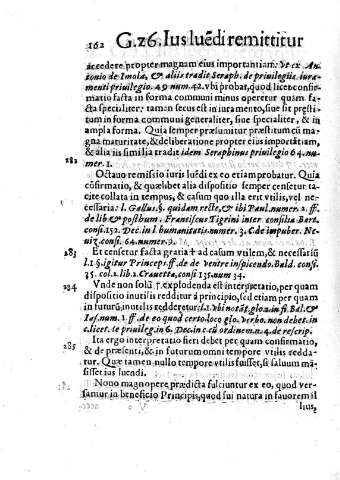 162 G.26. Ius luēdi remittitur
accedere propter magnam eius importantiam: Vt ex An-
tonio de Imola, & aliis tradit Seraph. de privilegiis iura-
menti privilegio. 49 num. 42. vbi probat, quod licet confir-
matio facta in forma communi minus operetur quim fa-
cta specialiter; tamen secus est in iuramento, siue sit pręsti-
tum in forma communi generaliter, siue specialiter, & in
ampla forma. Quia semper præsumitur præstitum cū ma-
gna maturitate, & deliberatione propter eius importātiam,
& alia iis similia tradit idem Seraphinus privilegio 64. nu-
282 mer. 1.
Octauo remissio iuris luēdi ex eo etiam probatur. Quia
cōfirmatio, & quælibet alia dispositio semper censetur ta-
cite collata in tempus, & casum quo alia erit vtilis, vel ne-
cessaria: l. Gallus §. quidam recte, & ibi Paul. numer. 2. ff.
de lib & posthum. Franciscus Tigrini inter consilia Bert.
consi. 152. Dec. in l. humanitatis numer. 3. C de impuber. Ne-
uiz. consi 64. numer. 9.
283 Et censetur facta gratia † ad casum vtilem, & necessariū
l. 1 §. igitur Princeps. ff. de de ventre inspicendo. Bald. consi.
75. col. 2. lib 2. Crauetta, consi 135. num 34.
284 Vnde non solū † explodenda est interpretatio, per quam
dispositio inutilis redditur à principio, sed etiam per quam
in futurū inutilis redderetur, l. 1. Vbi notāt glo. in fi. Bal. &
Ias. num. 1. ff de eo per quod certo loco glo. verbo. non debet. in
c. licet. te privileg. in 6. Dec. in c cū ordinem n. 4. de rescrip.
Ita ergo interpretatio fieri debet per quam confirmatio,
285 & de præsenti, & in futurum omni tempore vtilis redda-
tur. Quæ tamen nullo tempore vtilis fuisset, si saluum mā-
sisset ius luendi.
Nono magnopere prædicta fulciuntur ex eo, quod ver-
samur in beneficio Principis, quod sui natura in fauorem il
lius,